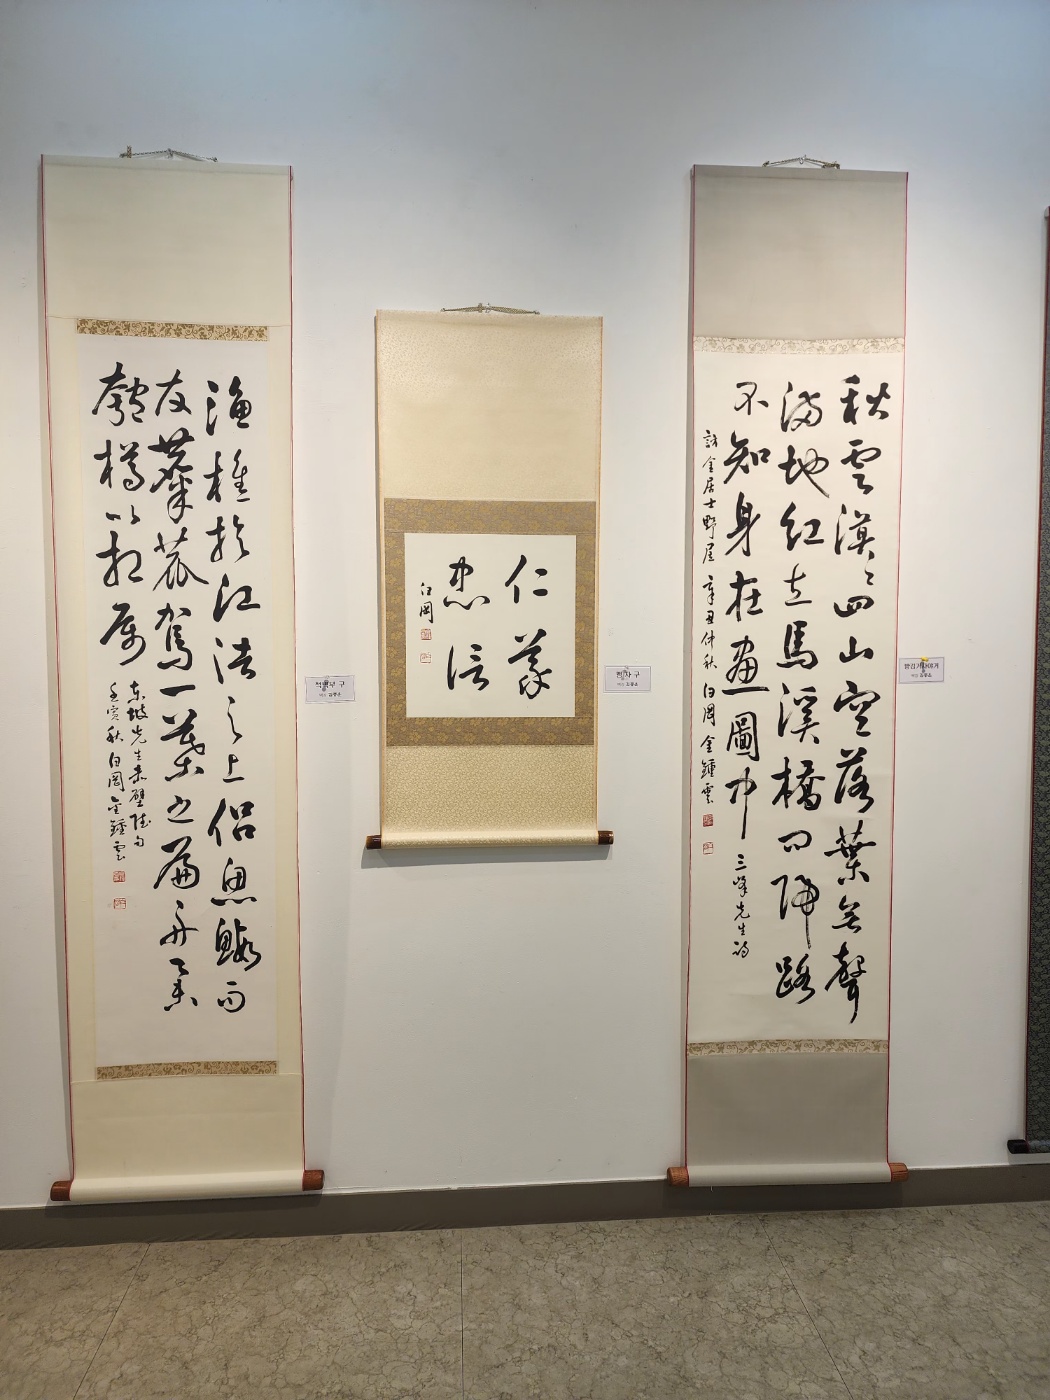 漁樵於江渚之上侶魚鰕而
友麋鹿駕一葉之扁舟擧
匏樽以相屬
東坡先生赤壁賦句
壬寅秋白岡金鍾雲
적벽부 구
仁義
忠信
白岡
맹자 구
秋雲漠〻四山空落葉無聲
滿地紅立馬溪橋問歸路
不知身在畫圖中 三峰先生詩
訪金居士野居 辛丑仲秋 白岡金鍾雲
방김거사야거